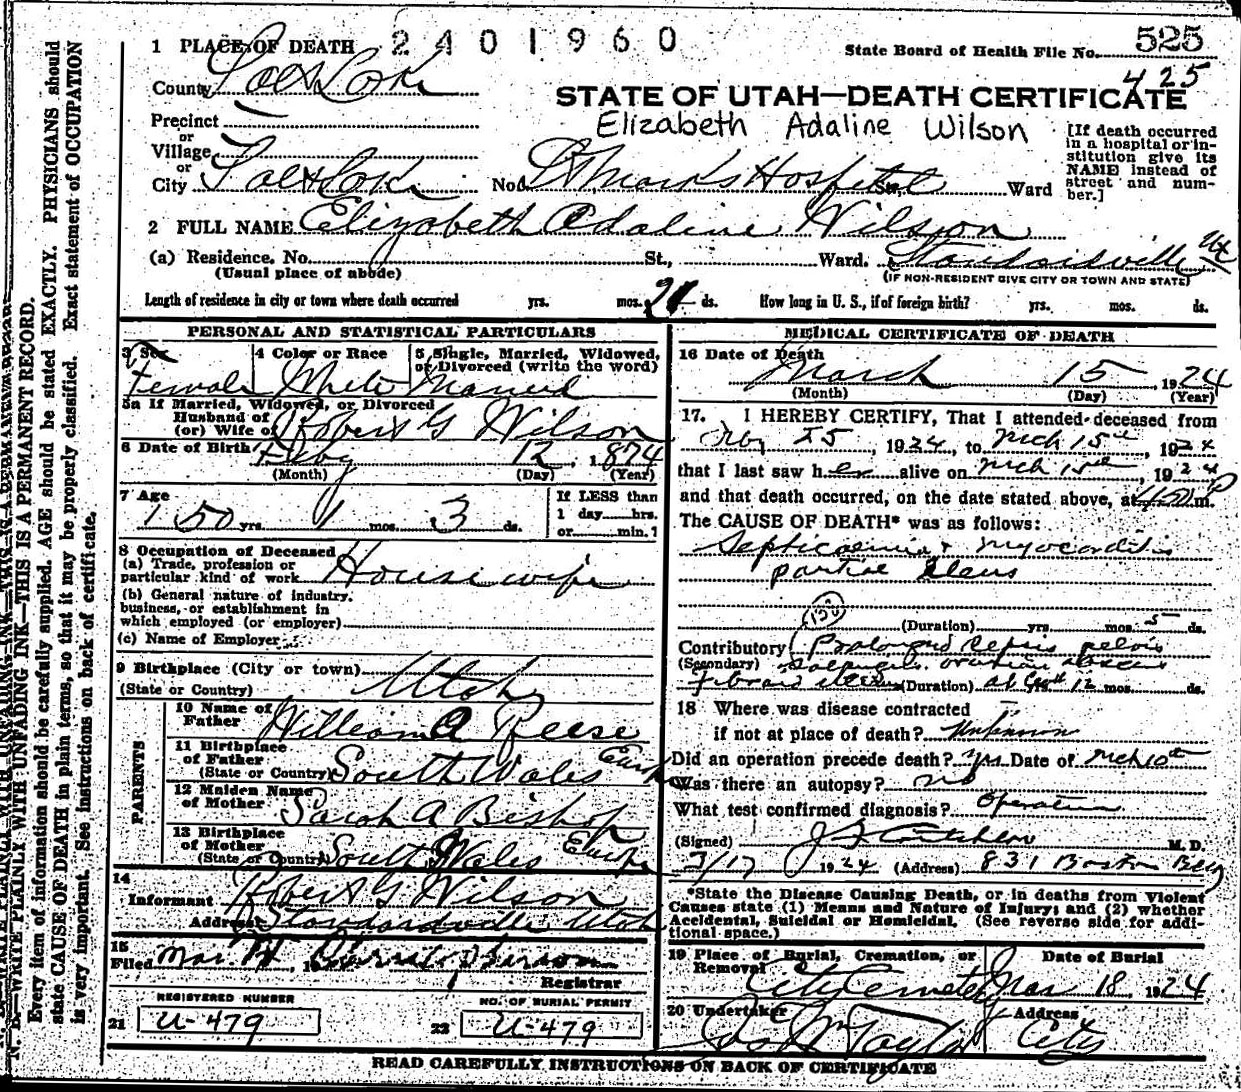 1 PLACE OF DEATH 2401960
State Board of Health File No. 525
425
County Salt Lake
STATE OF UTAH—DEATH CERTIFICATE
Elizabeth Adaline Wilson
Precinct
or
Village
or
City Salt Lake No. St Mark's Hospital St., Ward
[If death occurred
in a hospital or in-
stitution give its
NAME instead of
street and num-
ber.]
2 FULL NAME Elizabeth Adaline Wilson
(a) Residence. No. St., Ward. Standardville Ut
(Usual place of abode) (IF NON-RESIDENT GIVE CITY OR TOWN AND STATE)
Length of residence in city or town where death occurred yrs. mos. 21 ds. How long in U. S., if of foreign birth? yrs. mos. ds.
PERSONAL AND STATISTICAL PARTICULARS
3 Sex 4 Color or Race 5 Single, Married, Widowed,
or Divorced (write the word)
Female White Married
5a If Married, Widowed, or Divorced
Husband of
(or) Wife of Robert G Wilson
6 Date of Birth Feby 12, 1874
(Month) (Day) (Year)
7 Age If LESS than
50 yrs 1 mos. 3 ds. 1 day hrs.
or min. ?
8 Occupation of Deceased
(a) Trade, profession or
particular kind of work Housewife
(b) General nature of industry,
business, or establishment in
which employed (or employer)
(c) Name of Employer
9 Birthplace (City or town)
(State or Country) Utah
PARENTS
10 Name of
Father William A Reese
11 Birthplace
of Father
(State or Country) South Wales Europe
12 Maiden Name
of Mother Sarah A Bishop
13 Birthplace
of Mother
(State or Country) South Wales Europe
14
Informant Robert G Wilson
Address Standardville Utah
15
Filed Mar. 17, 19
Registrar
REGISTERED NUMBER NO. OF BURIAL PERMIT
21 U-479 22 U-479
MEDICAL CERTIFICATE OF DEATH
16 Date of Death
March 15, 1924
(Month) (Day) (Year)
17. I HEREBY CERTIFY, That I attended deceased from
Feby 25, 1924, to Mch 15th, 1924
that I last saw her alive on Mch 15th, 1924
and that death occurred, on the date stated above, at P m.
The CAUSE OF DEATH* was as follows:
Septicaemia + myocarditis
partial ileus
(Duration) yrs. mos. 5 ds.
Contributory Prolonged Sepsis pelvis
(Secondary) ovarian abscess
Fibroid uterus (Duration) 12 mos. ds.
18 Where was disease contracted
if not at place of death? Unknown
Did an operation precede death? yes Date of Mch 10th
Was there an autopsy? no
What test confirmed diagnosis? Operation
(Signed) M. D.
3/17 1924 (Address) 831 Boston Bldg
*State the Disease Causing Death, or in deaths from Violent
Causes state (1) Means and Nature of Injury; and (2) whether
Accidental, Suicidal or Homicidal. (See reverse side for addi-
tional space.)
19 Place of Burial, Cremation, or Date of Burial
Removal City Cemetery Mar 18, 1924
20 Undertaker Address
Taylor City
READ CAREFULLY INSTRUCTIONS ON BACK OF CERTIFICATE
N. B.—WRITE PLAINLY WITH UNFADING INK—THIS IS A PERMANENT RECORD.
Every item of information should be carefully supplied. AGE should be stated EXACTLY. PHYSICIANS should
state CAUSE OF DEATH in plain terms, so that it may be properly classified. Exact statement of OCCUPATION
is very important. See instructions on back of certificate.